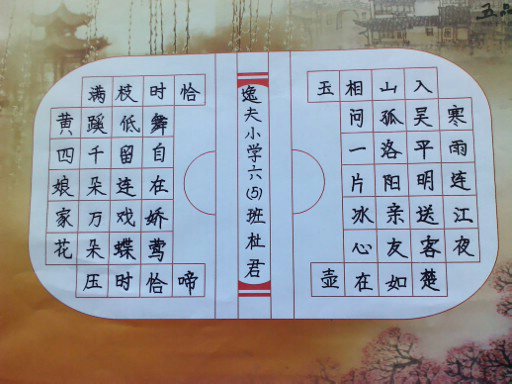 黄四娘家花
满蹊千朵万朵压
枝低留连戏蝶时
时舞自在娇莺恰
恰啼
逸夫小学六(5)班杜君
寒雨连江夜
入吴平明送客楚
山孤洛阳亲友如
相问一片冰心在
玉壶